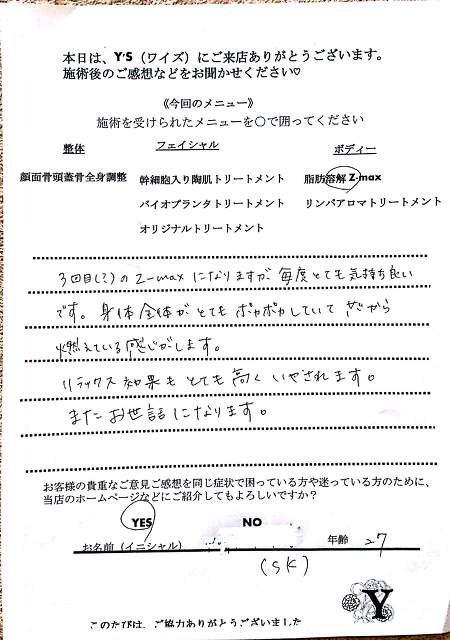 本日は、Y'S（ワイズ）にご来店ありがとうございます。
施術後のご感想などをお聞かせください♡
《今回のメニュー》
施術を受けられたメニューを〇で囲ってください
整体
顔面骨頭蓋骨全身調整
フェイシャル
幹細胞入り陶肌トリートメント
バイオプランタトリートメント
オリジナルトリートメント
ボディー
脂肪溶解 Z-max
リンパアロマトリートメント
3回目(?)のZ-maxになりますが毎度とても気持ち良い
です。身体全体がとてもポカポカしていて 芯から
燃えている感じがします。
リラックス効果もとても高くいやされます。
またお世話になります。
お客様の貴重なご意見ご感想を同じ症状で困っている方や迷っている方のために、
当店のホームページなどにご紹介してもよろしいですか？
YES NO
お名前（イニシャル） 年齢 27
(SK)
Y
このたびは、ご協力ありがとうございました